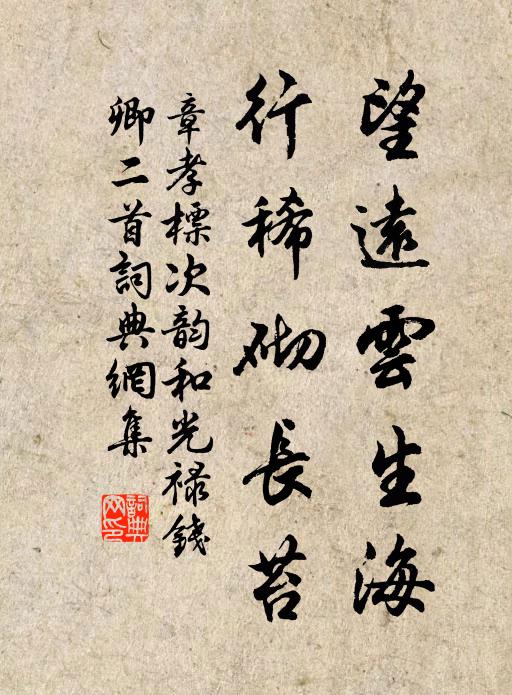 望遠雲生海
行稀砌長苔
章孝標次韵和光禄錢
卿二首詞典網集
詞典网印